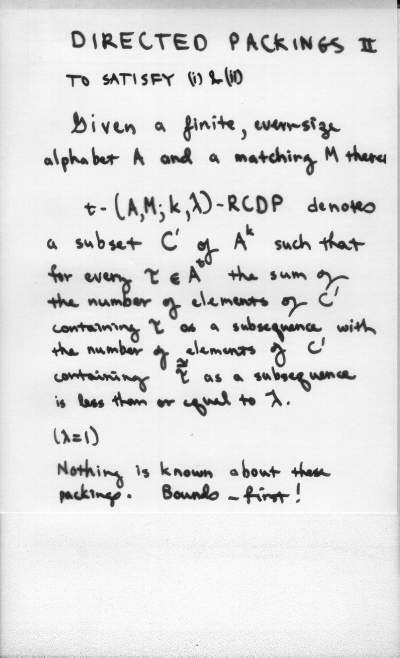 DIRECTED PACKINGS II
TO SATISFY (i) & (ii)
Given a finite, even-size
alphabet A and a matching M there
t-(A,M; k,λ)-RCDP denotes
a subset C' of Aᵏ such that
for every τ ∈ Aᵗ the sum of
the number of elements of C'
containing τ as a subsequence with
the number of elements of C'
containing τ̃̃ as a subsequence
is less than or equal to λ.
(λ=1)
Nothing is known about these
packings. Bounds – first!